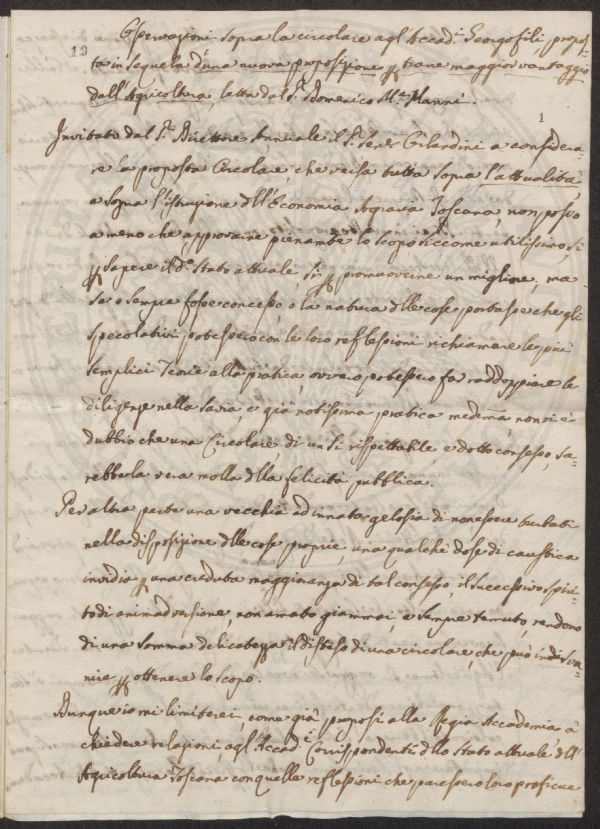 Osservazioni sopra la circolare agl'Accad.i Georgofili, propos-
13
ta in sequela d'una nuova proposizione p trarre maggior vantaggio
dall'Agricoltura, letta dal S.r Domenico M.a Manni.
1
Invitato dal S.r Direttore Annuale il S.r Gilardini a considera-
re la proposta Circolare che versa tutta sopra l'attualità,
e sopra l'istruzione dell'Economia Agraria Toscana, non posso
a meno che approvarne pienamte lo scopo siccome utilissimo, sì
p sapere il d.o Stato attuale, sì p promuoverne un migliore, ma
se o sempre fosse concesso, o la natura dlle cose portasse che gli
speculativi potessero con le loro reflessioni richiamare le più
semplici Teorie alla pratica, ovvero potessero far raddoppiare le
diligenze nella savia, e già notissima pratica medema, non vi è
dubbio che una Circolare, di un sì rispettabile, e dotto consesso, sa-
rebbe la vera molla dlla felicità pubblica.
Per altra parte una vecchia ed innata gelosia di non essere turbati
nella disposizione dlle cose proprie, una qualche dose di caustica
invidia p una creduta maggioranza di tal consesso, il successivo spiri-
to di animadversione, non amato giammai e sempre temuto, rendono
di una somma delicatezza il disteso di una circolare, che può
p ottenere lo scopo.
Dunque io mi limiterei come già proposi alla Regia Accademia à
chiedere relazioni, agl'Accad.i Corrispondenti dllo Stato attuale dll'
Agricoltura Toscana con quelle reflessioni che paressero loro proficue